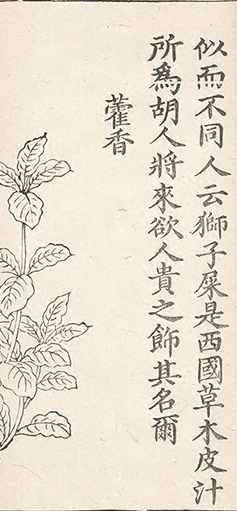 似而不同人云獅子屎是西國草木皮汁
所為胡人將來欲人貴之飾其名爾
藿香